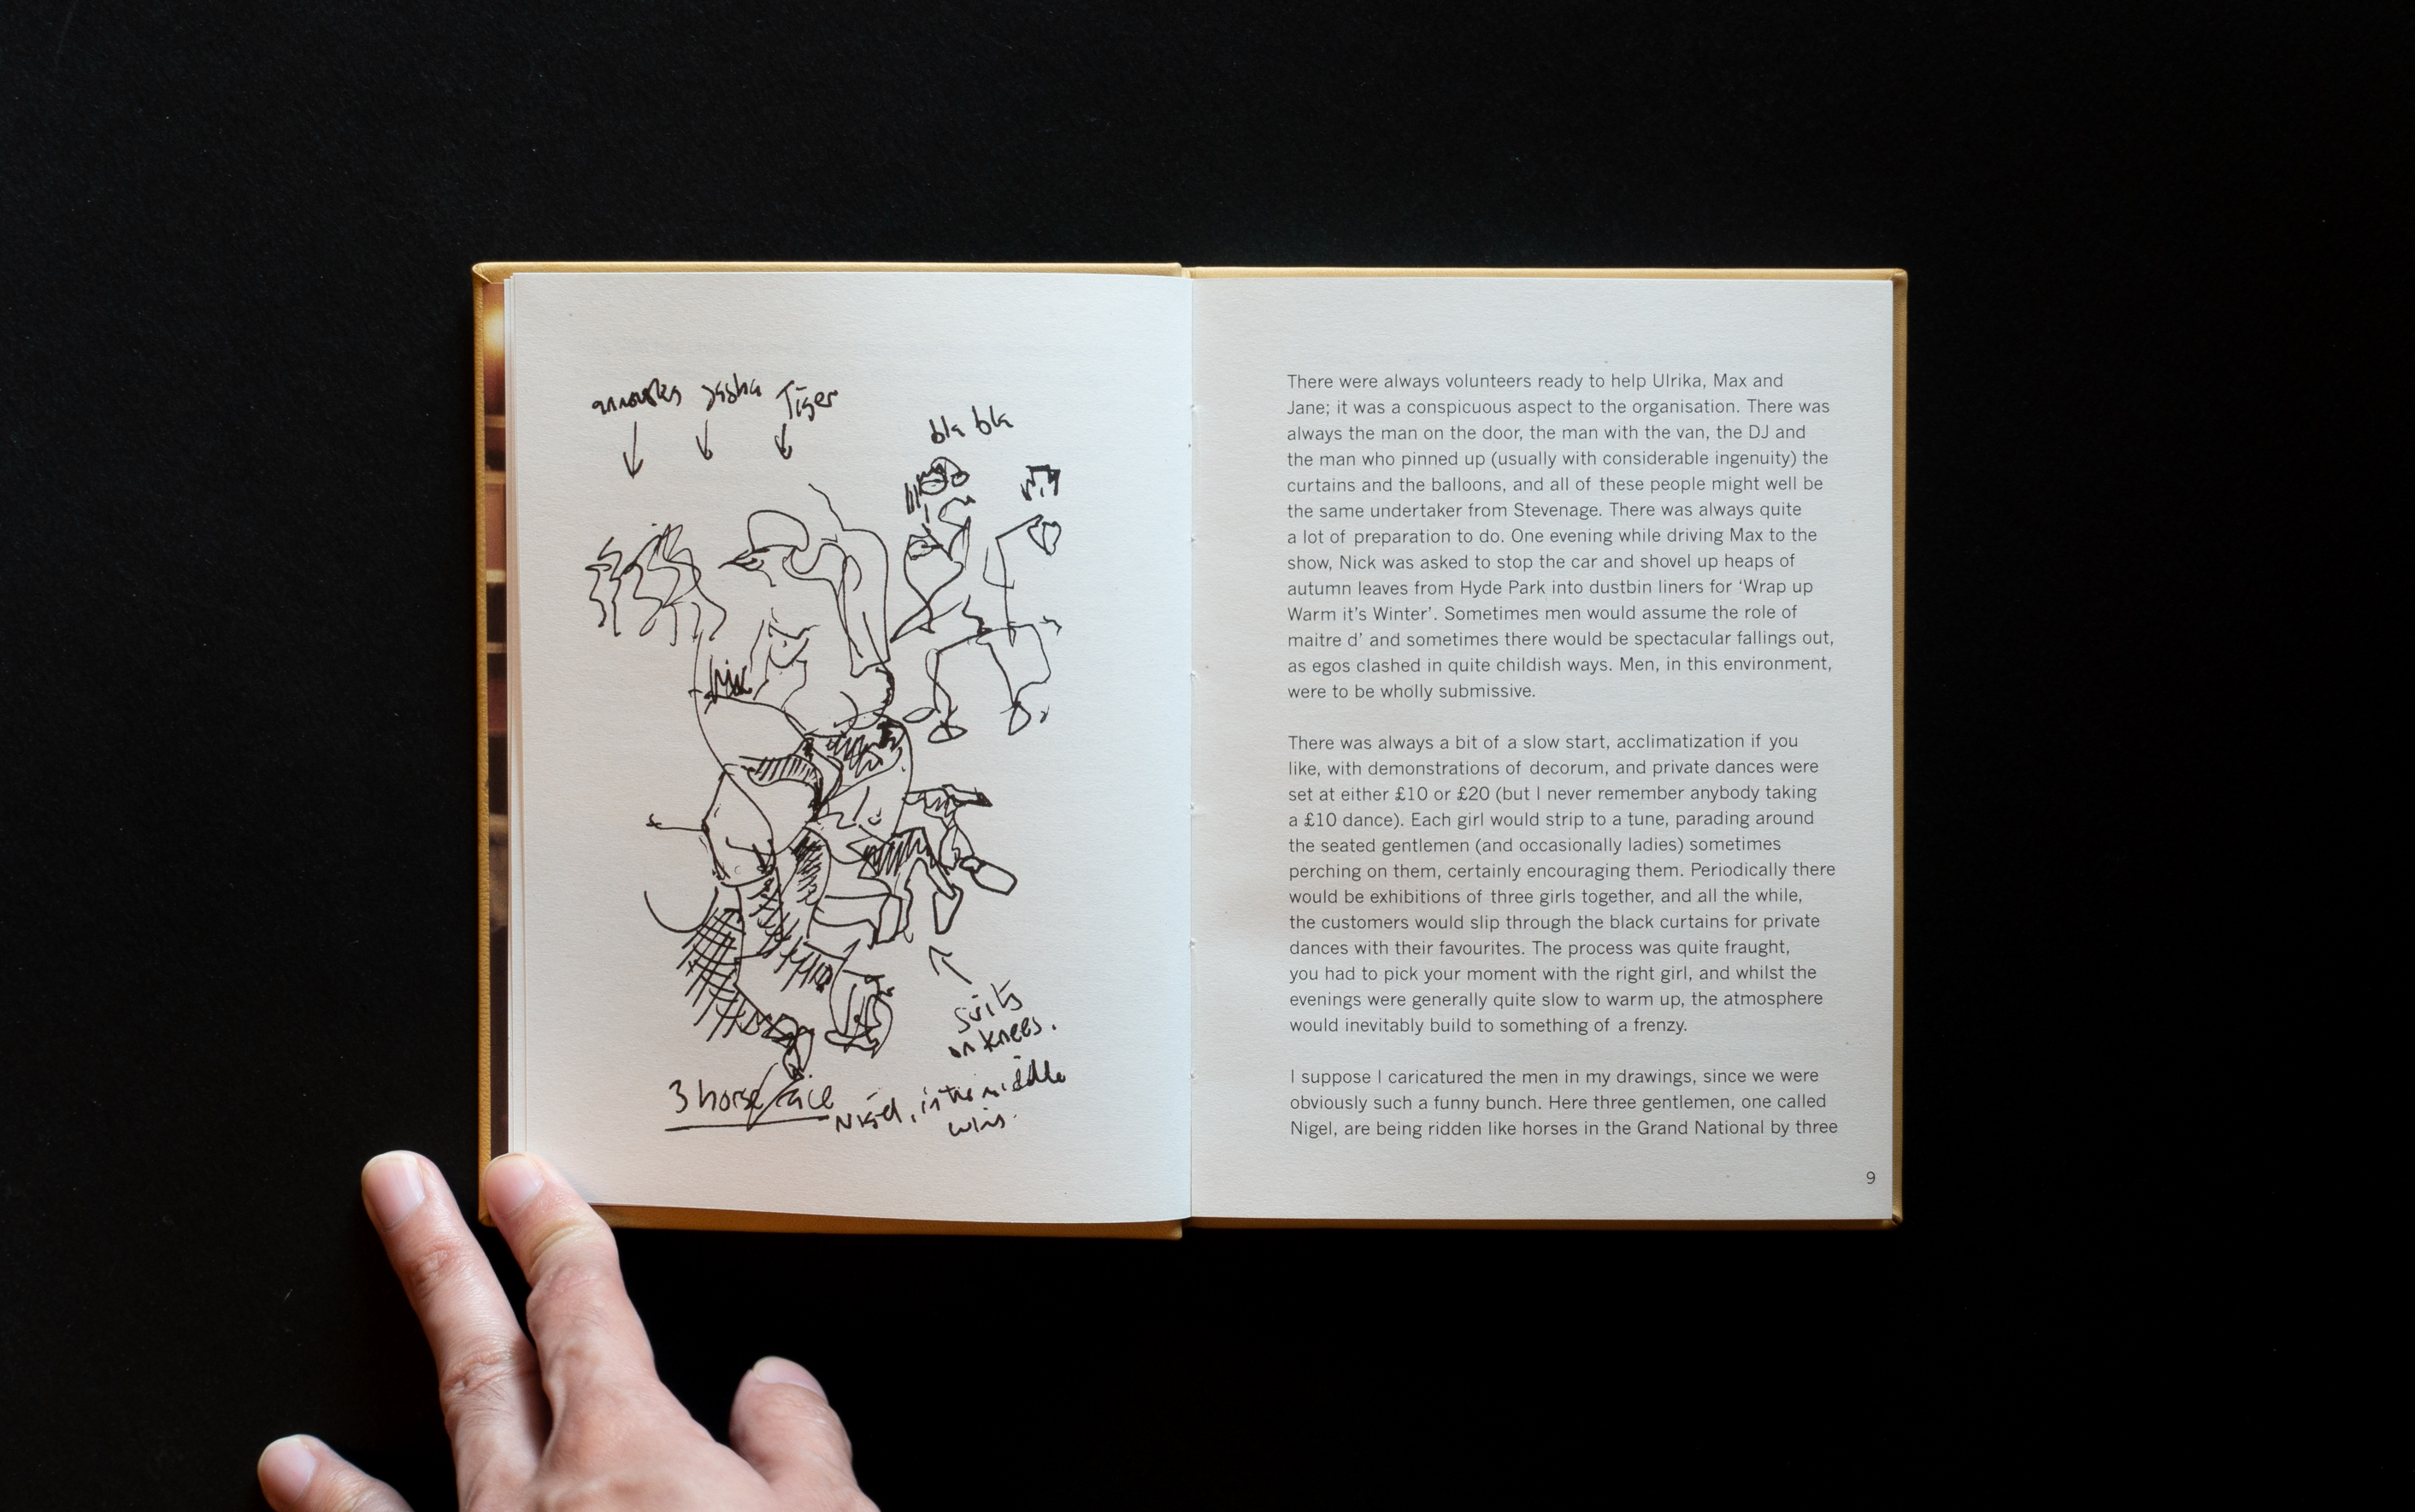 annouska sasha Tiger
bla bla
suits
on knees.
3 horse race
Nigel, in the middle
wins.
There were always volunteers ready to help Ulrika, Max and
Jane; it was a conspicuous aspect to the organisation. There was
always the man on the door, the man with the van, the DJ and
the man who pinned up (usually with considerable ingenuity) the
curtains and the balloons, and all of these people might well be
the same undertaker from Stevenage. There was always quite
a lot of preparation to do. One evening while driving Max to the
show, Nick was asked to stop the car and shovel up heaps of
autumn leaves from Hyde Park into dustbin liners for ‘Wrap up
Warm it’s Winter’. Sometimes men would assume the role of
maitre d’ and sometimes there would be spectacular fallings out,
as egos clashed in quite childish ways. Men, in this environment,
were to be wholly submissive.
There was always a bit of a slow start, acclimatization if you
like, with demonstrations of decorum, and private dances were
set at either £10 or £20 (but I never remember anybody taking
a £10 dance). Each girl would strip to a tune, parading around
the seated gentlemen (and occasionally ladies) sometimes
perching on them, certainly encouraging them. Periodically there
would be exhibitions of three girls together, and all the while,
the customers would slip through the black curtains for private
dances with their favourites. The process was quite fraught,
you had to pick your moment with the right girl, and whilst the
evenings were generally quite slow to warm up, the atmosphere
would inevitably build to something of a frenzy.
I suppose I caricatured the men in my drawings, since we were
obviously such a funny bunch. Here three gentlemen, one called
Nigel, are being ridden like horses in the Grand National by three
9